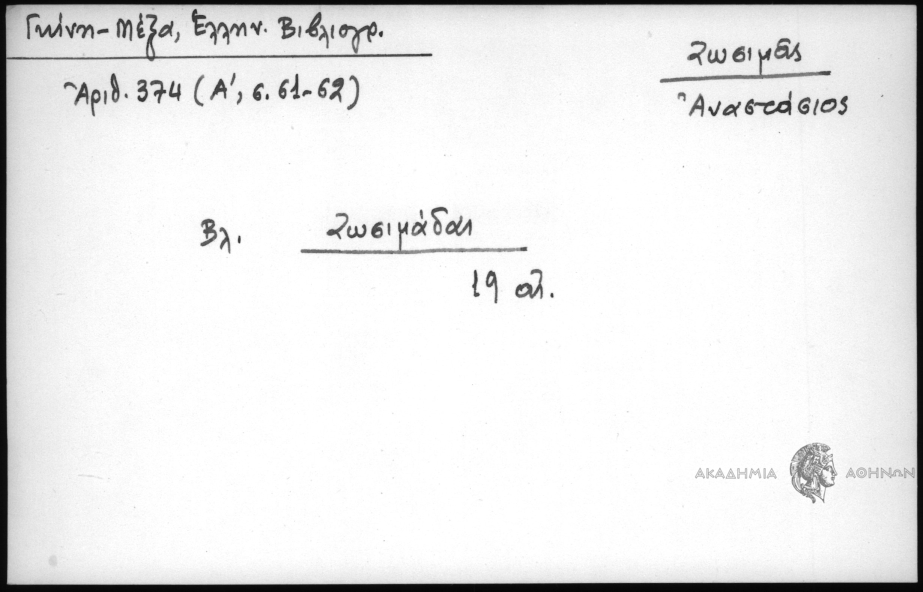 Γκίνη-Μέξα, Ἑλλην. Βιβλιογρ.
Ἀριθ. 374 (Α', σ. 61-62)
Ζωσιμᾶς
Ἀναστάσιος
Βλ. Ζωσιμάδαι
19 αἰ.
ΑΚΑΔΗΜΙΑ ΑΘΗΝΩΝ